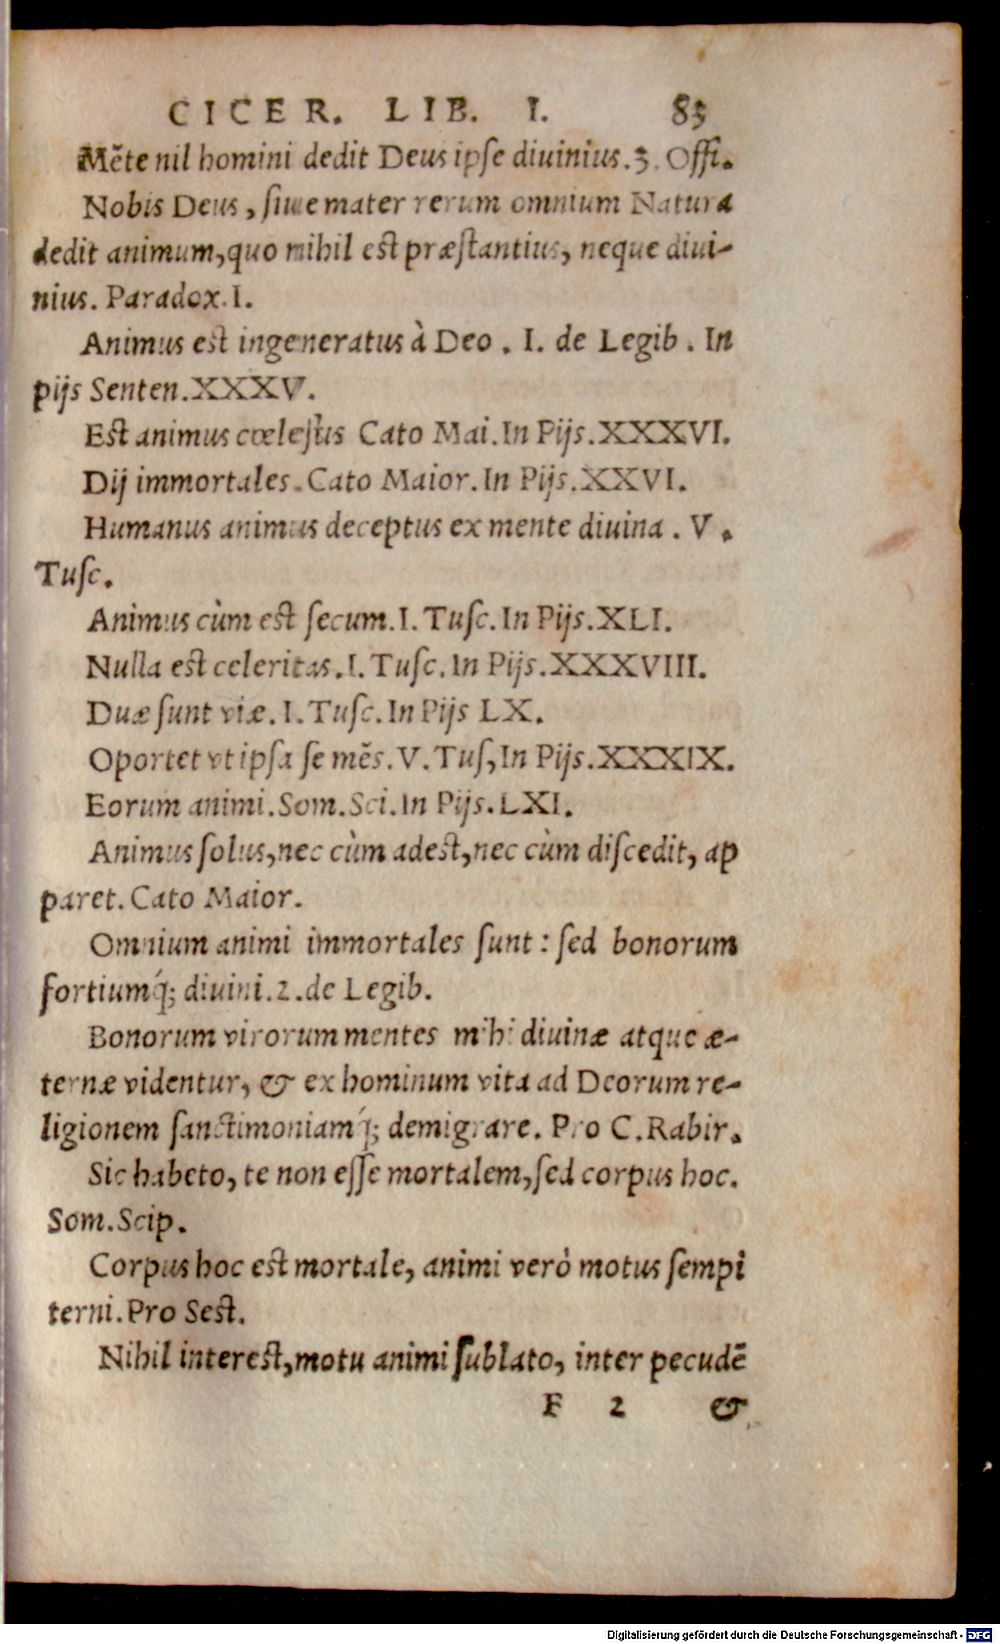 CICER. LIB. I. 83
Mẽte nil homini dedit Deus ipse diuinius. 3. Offi.
Nobis Deus, siue mater rerum omnium Natura
dedit animum, quo nihil est præstantius, neque diui-
nius. Paradox. I.
Animus est ingeneratus à Deo. I. de Legib. In
pijs Senten. XXXV.
Est animus cœlestis Cato Mai. In Pijs. XXXVI.
Dij immortales. Cato Maior. In Pijs. XXVI.
Humanus animus deceptus ex mente diuina. V.
Tusc.
Animus cùm est secum. I. Tusc. In Pijs. XLI.
Nulla est celeritas. I. Tusc. In Pijs. XXXVIII.
Duæ sunt viæ. I. Tusc. In Pijs LX.
Oportet vt ipsa se mẽs. V. Tus, In Pijs. XXXIX.
Eorum animi. Som. Sci. In Pijs. LXI.
Animus solus, nec cùm adest, nec cùm discedit, ap
paret. Cato Maior.
Omnium animi immortales sunt: sed bonorum
fortiumq́; diuini. 2. de Legib.
Bonorum virorum mentes mihi diuinæ atque æ-
ternæ videntur, & ex hominum vita ad Deorum re-
ligionem sanctimoniamq́; demigrare. Pro C. Rabir.
Sic habeto, te non esse mortalem, sed corpus hoc.
Som. Scip.
Corpus hoc est mortale, animi verò motus sempi
terni. Pro Sest.
Nihil interest, motu animi sublato, inter pecudẽ
F 2 &
Digitalisierung gefördert durch die Deutsche Forschungsgemeinschaft - DFG